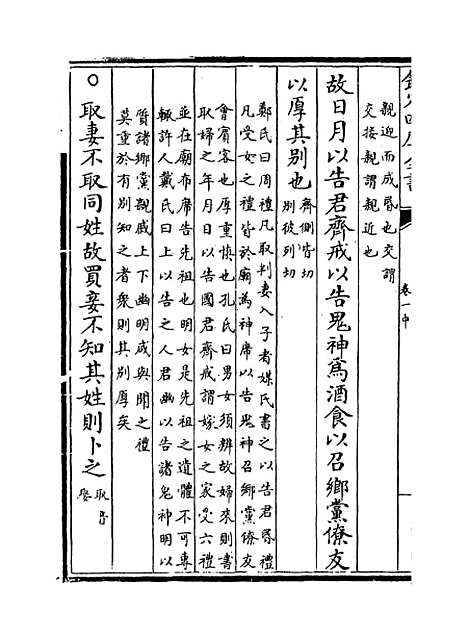 欽定四庫全書
卷一中
親迎而成昏也交謂
交接親謂親近也
故日月以告君齊戒以告鬼神為酒食以召鄉黨僚友
以厚其別也
齊側皆切
別彼列切
鄭氏曰周禮凡取判妻入子者媒氏書之以告君昏禮
凡受女之禮皆於廟為神席以告鬼神召鄉黨僚友
會賓客也厚重慎也孔氏曰男女須辨故婦來則書
取婦之年月日以告國君齊戒謂嫁女之家受六禮
並在廟布席告先祖也明女是先祖之遺體不可專
輒許人戴氏曰上以告之人君幽以告諸鬼神明以
質諸鄉黨親戚上下幽明咸與聞之禮
莫重於有別知之者衆則其別厚矣
○取妻不取同姓故買妾不知其姓則卜之
取音
娶